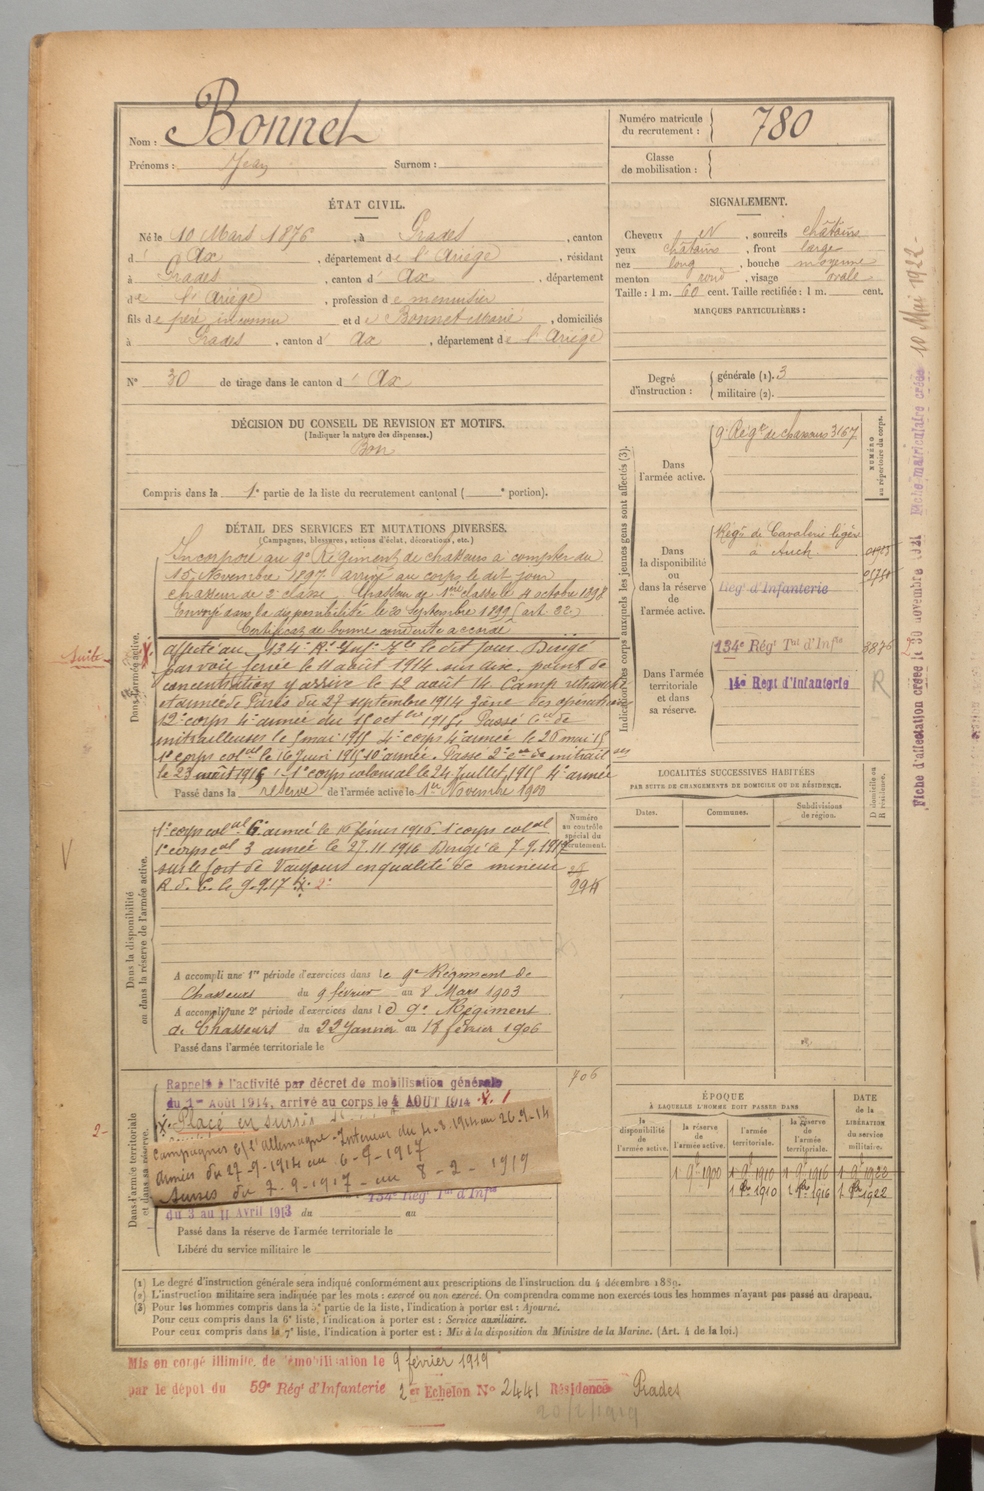 Nom : Bonnet
Prénoms : Jean Surnom :
Numéro matricule du recrutement : 780
Classe de mobilisation :
ÉTAT CIVIL.
Né le 10 Mars 1876, à Prades, canton
d' Ax, département de l'Ariége, résidant
à Prades, canton d' Ax, département
de l'Ariége, profession de menuisier
fils de père inconnu et de Bonnet Marie, domiciliés
à Prades, canton d' Ax, département de l'Ariége
N° 30 de tirage dans le canton d' Ax
SIGNALEMENT.
Cheveux N, sourcils châtains
yeux châtains, front large
nez long, bouche moyenne
menton rond, visage ovale
Taille : 1 m. 60 cent. Taille rectifiée : 1 m. cent.
MARQUES PARTICULIÈRES :
Degré d'instruction : générale (1). 3
militaire (2).
DÉCISION DU CONSEIL DE REVISION ET MOTIFS.
(Indiquer la nature des dispenses.)
Bon
Compris dans la 1e partie de la liste du recrutement cantonal ( e portion).
DÉTAIL DES SERVICES ET MUTATIONS DIVERSES.
(Campagnes, blessures, actions d'éclat, décorations, etc.)
Dans l'armée active.
Incorporé au 9e Régiment de chasseurs à compter du
15 Novembre 1897 arrivé au corps le dit jour
chasseur de 2e classe. Chasseur de 1ère classe le 4 octobre 1898
Envoyé dans la disponibilité le 20 septembre 1899 (art. 22)
Certificat de bonne conduite accordé
Suite
affecté au 134e Rt Inft Tle le dit jour. Dirigé
par voie ferrée le 11 août 1914 sur dise, point de
concentration y arrive le 12 août 14 Camp retranché
et armée de Paris du 27 septembre 1914 Zone des opérations
12e corps 4e armée du 15 octbre 1915, Passé Cie de
mitrailleuses le 5 mai 1915 4e corps 4e armée le 26 mai 15
1e corps colal le 16 juin 1915 10e armée. Passé 2e cie de mitrailses
le 23 août 1915 1e corps colonial le 24 juillet 1915 4e armée
Passé dans la réserve de l'armée active le 1er Novembre 1900
Dans la disponibilité ou dans la réserve de l'armée active.
1e corps colal 6e armée le 15 février 1916 1e corps colal
1e corps cal 3 armée le 27 11 1916 Dirigé le 7-9-1917
sur le fort de Vaujours en qualité de mineur
R. d. C. le 9.9.17 X 2
Numéro au contrôle spécial du recrutement.
994
A accompli une 1re période d'exercices dans le 9e Régiment de
Chasseurs du 9 février au 8 Mars 1903
A accompli une 2e période d'exercices dans le 9e Régiment
de Chasseurs du 22 Janvier au 18 février 1906
Passé dans l'armée territoriale le
Dans l'armée territoriale et dans sa réserve.
706
Rappelé à l'activité par décret de mobilisation générale
du 1er Août 1914, arrivé au corps le 4 AOUT 1914 X. 1
X. Placé en sursis
Campagnes c/ l'Allemagne. Interieur du 4-8-1914 au 26-9-14
Armées du 27-9-1914 au 6-9-1917
Sursis du 7-9-1917 au 8-2-1919
134e Rég Tal d'Infie
du 3 au 11 Avril 1913 du au
Passé dans la réserve de l'armée territoriale le
Libéré du service militaire le
Indication des corps auxquels les jeunes gens sont affectés (3).
NUMÉRO au répertoire du corps.
Dans l'armée active.
9e Régt de chasseurs 3167
Dans la disponibilité ou dans la réserve de l'armée active.
Régt de Cavalerie légère
à Auch
Rég d'Infanterie
Dans l'armée territoriale et dans sa réserve.
134e Rég Tal d'Infie 3876
14e Regt d'Infanterie R
LOCALITÉS SUCCESSIVES HABITÉES
PAR SUITE DE CHANGEMENTS DE DOMICILE OU DE RÉSIDENCE.
Dates. Communes. Subdivisions de région. D domicile ou R résidence.
ÉPOQUE
À LAQUELLE L'HOMME DOIT PASSER DANS
DATE de la LIBÉRATION du service militaire.
la disponibilité de l'armée active. la réserve de l'armée active. l'armée territoriale. la réserve de l'armée territoriale.
1 9e 1900 1 9e 1910 1 9e 1916 1 9e 1922
1 8re 1910 1 8re 1916 1 8re 1922
(1) Le degré d'instruction générale sera indiqué conformément aux prescriptions de l'instruction du 4 décembre 1889.
(2) L'instruction militaire sera indiquée par les mots : exercé ou non exercé. On comprendra comme non exercés tous les hommes n'ayant pas passé au drapeau.
(3) Pour les hommes compris dans la 5e partie de la liste, l'indication à porter est : Ajourné.
Pour ceux compris dans la 6e liste, l'indication à porter est : Service auxiliaire.
Pour ceux compris dans la 7e liste, l'indication à porter est : Mis à la disposition du Ministre de la Marine. (Art. 4 de la loi.)
Mis en congé illimité de démobilisation le 9 février 1919
par le dépot du 59e Rég' d'Infanterie 2e Echelon N° 2441 Résidence Prades
20/2/1919
Fiche d'affectation créée le 30 novembre 1921 Fiche matriculaire créée 10 Mai 1922